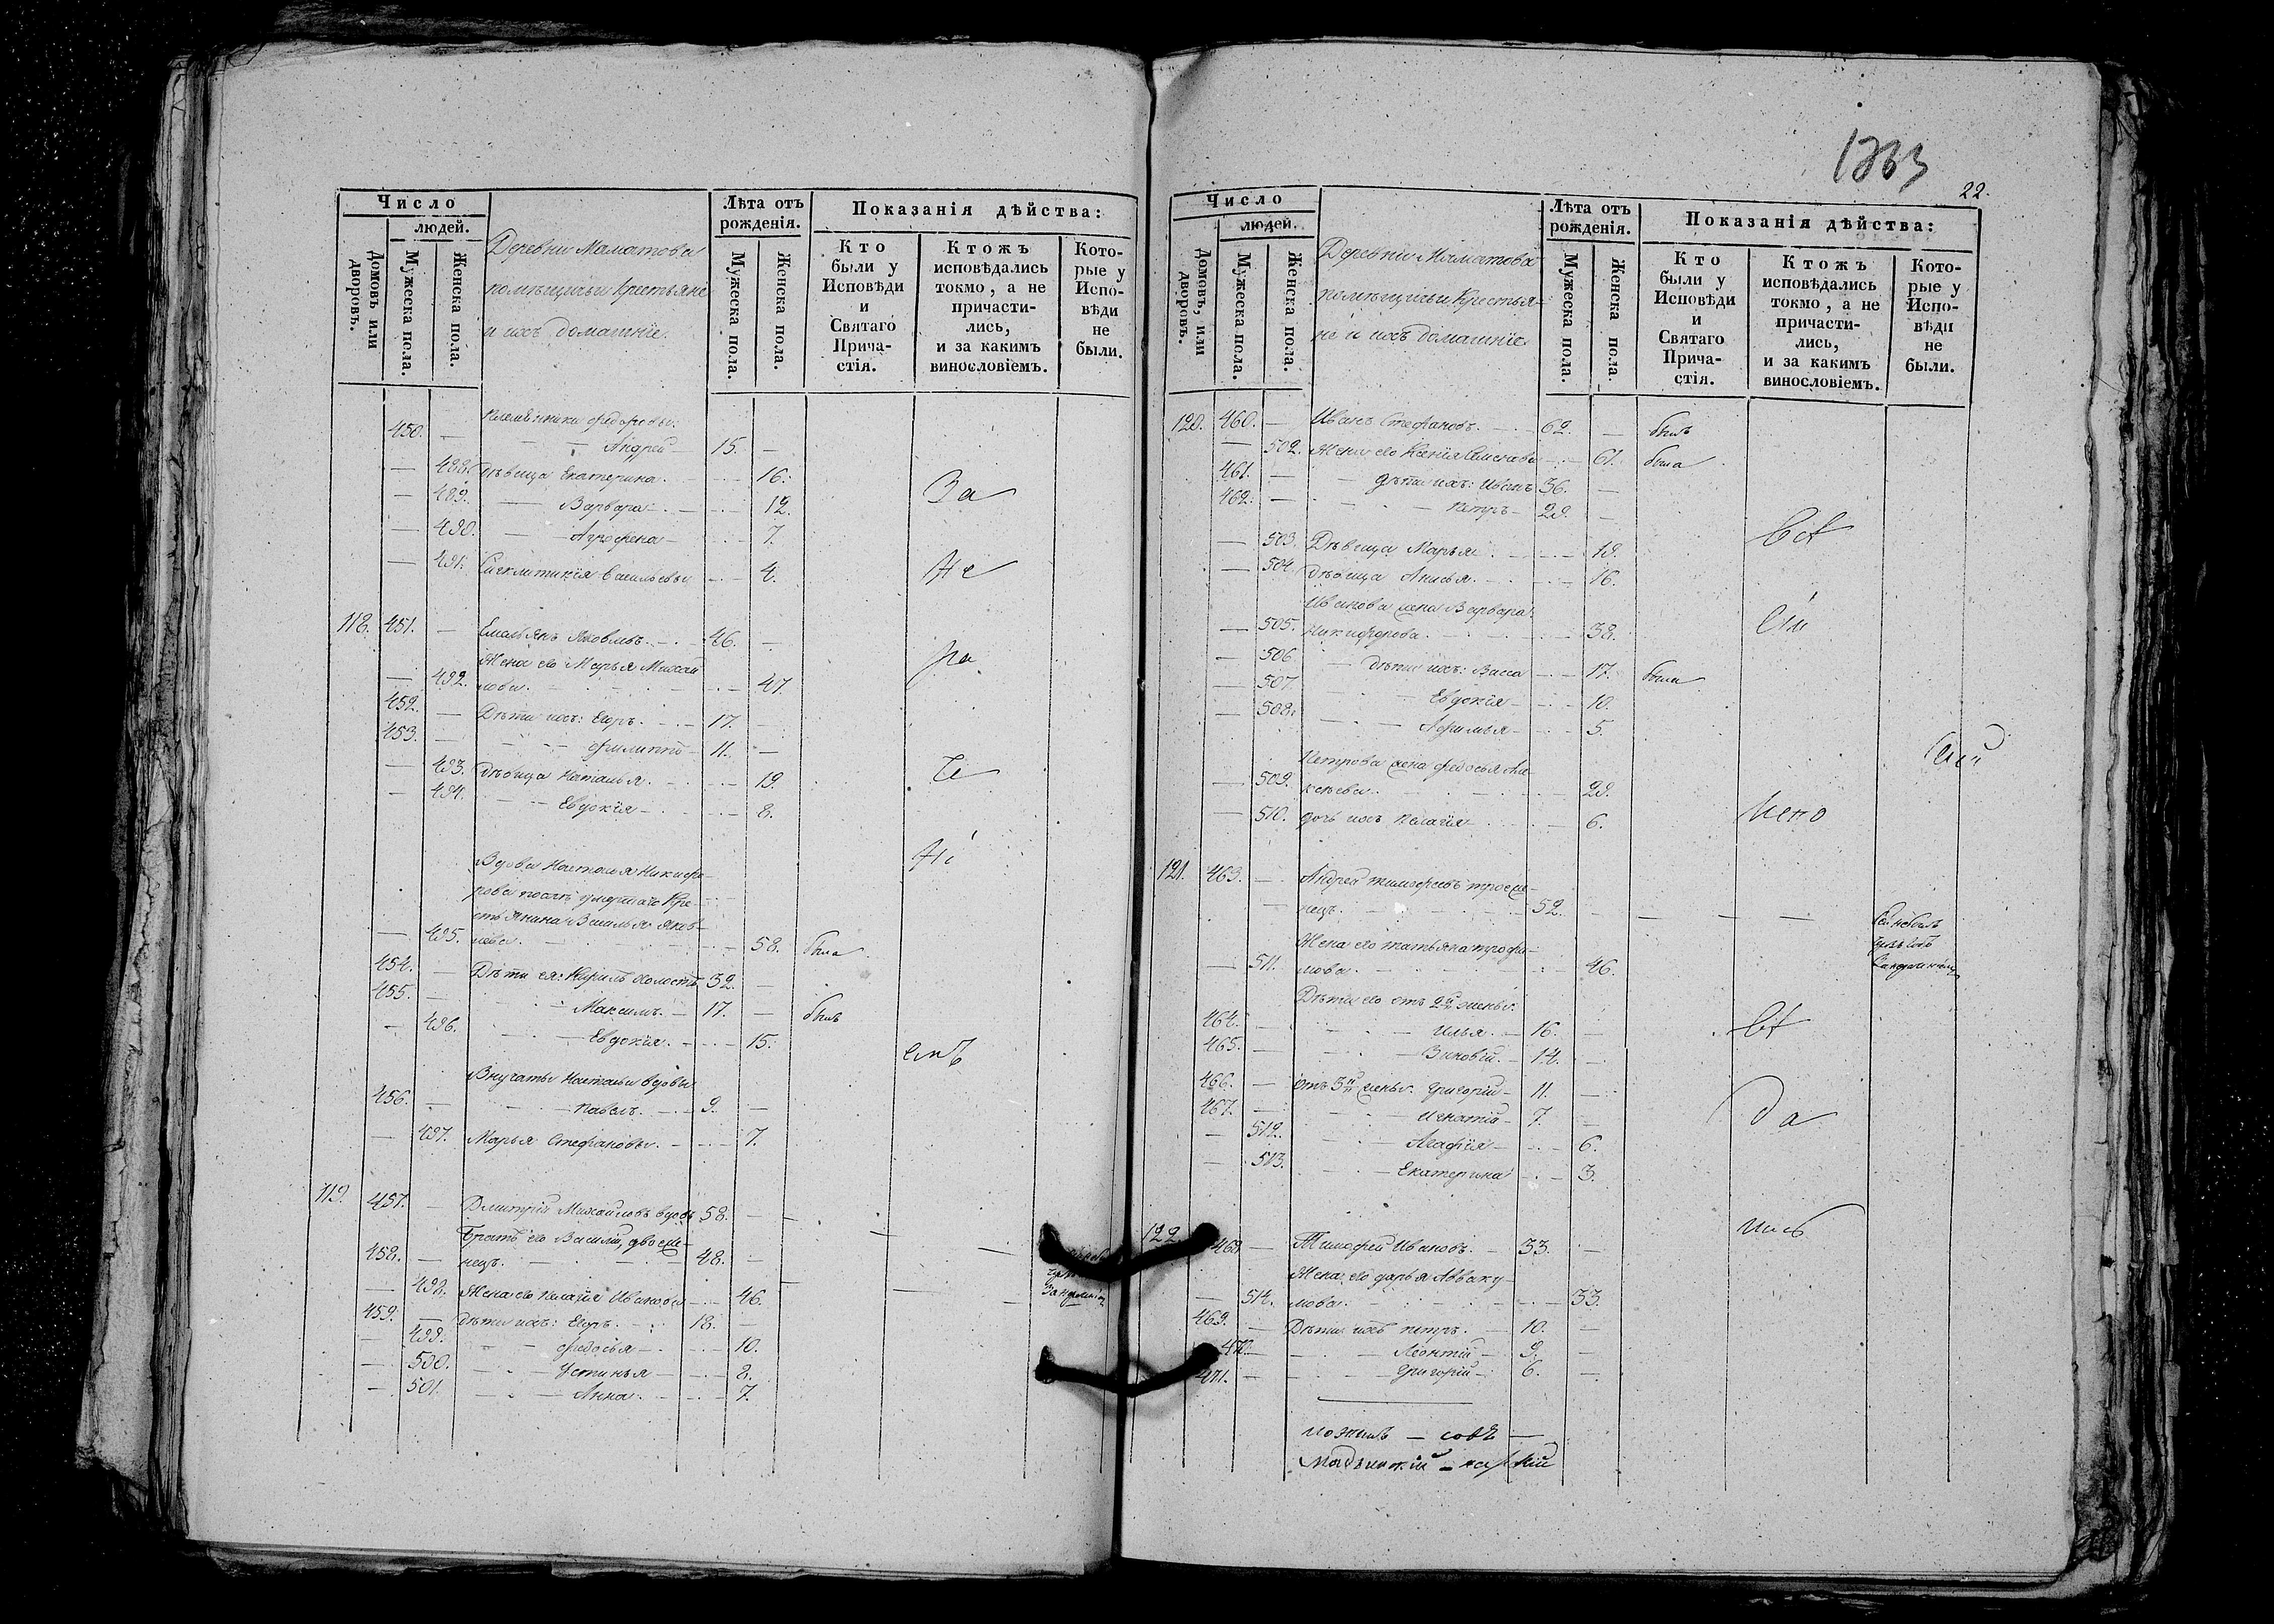 1363
22.
Число
людей.
Домовъ или дворовъ.
Мужеска пола.
Женска пола.
Деревни Маматова
помѣщичьи крестьяне
и ихъ домашніе.
Лѣта отъ рожденія.
Мужеска пола.
Женска пола.
Показанія дѣйства:
Кто были у Исповѣди и Святаго Причастія.
Ктожъ исповѣдались токмо, а не причастились, и за какимъ винословіемъ.
Которые у Исповѣди не были.
племянники Федоровы:
450. — Андрей — 15. —
— 488. дѣвица Екатерина. — 16.
— 489. Варвара — 12.
За
— 490. Агрофена — 7.
— 491. Синклитикія Васильева — 4.
не
118. 451. — Емельянъ Яковлевъ. — 46. —
Жена его Марья Михай
— 492. лова. — 47.
ра
452. — Дѣти ихъ: Егоръ. — 17. —
453. — Филиппъ — 11. —
— 493. дѣвица Наталья. — 19.
че
— 494. Евдокія — 8.
Вдова Наталья Никифо-
рова послѣ умершаго Кре-
стьянина Василья Яков-
— 495. лева. — 58. была
454. — Дѣти ея: Кирилъ холостъ 32. —
455. — Максимъ. — 17. — былъ
— 496. Евдокія. — 15.
емъ
Внучаты Натальи вдовы
456. — Павелъ. — 9. —
— 497. Марья Стефановы. — 7.
119. 457. — Дмитрій Михайловъ вдовъ 58. —
Братъ его Василій, двоеже-
458. — нецъ. — 48. —
— 498. Жена его Пелагія Иванова — 46.
459. — дѣти ихъ: Егоръ. — 18. —
— 499. Федосья — 10.
— 500. Устинья — 8.
— 501. Анна. — 7.
Число
людей.
Домовъ, или дворовъ.
Мужеска пола.
Женска пола.
Деревни Маматова
помѣщичьи Крестья-
не и ихъ домашніе
Лѣта отъ рожденія.
Мужеска пола.
Женска пола.
Показанія дѣйства:
Кто были у Исповѣди и Святаго Причастія.
Ктожъ исповѣдались токмо, а не причастились, и за какимъ винословіемъ.
Которые у Исповѣди не были.
120. 460. — Иванъ Стефановъ. — 62. — былъ
— 502. Жена его Ксенія — 61. была
461. — дѣти ихъ: Иванъ 36. —
462. — Петръ — 29. —
— 503. Дѣвица Марья. — 19.
— 504. дѣвица Анисья. — 16.
Иванова жена Варвара
— 505. Никифорова. — 38.
— 506. дѣти ихъ: Васса — 17. была
— 507. Евдокія — 10.
— 508. Афимья — 5.
Петрова жена Федосья Але-
— 509. ксѣева. — 29.
— 510. дочь ихъ Пелагія — 6.
121. 463. — Андрей Тимофеевъ троеже-
нецъ. — 52. —
Жена его Татьяна Трофи-
— 511. мова. — 46.
Дѣти его отъ 2й жены:
464. — Илья. — 16. —
465. — Зиновій. — 14. —
466. — отъ 3й жены: Григорій — 11. —
467. — Игнатій — 7. —
да
— 512. Агафія — 6.
— 513. Екатерина — 3.
122. 468. — Тимофей Ивановъ. — 33. —
Жена его Дарья Авваку-
— 514. мова. — 33.
469. — Дѣти ихъ Петръ. — 10. —
470. — Леонтій — 9. —
471. — Григорій — 6. —